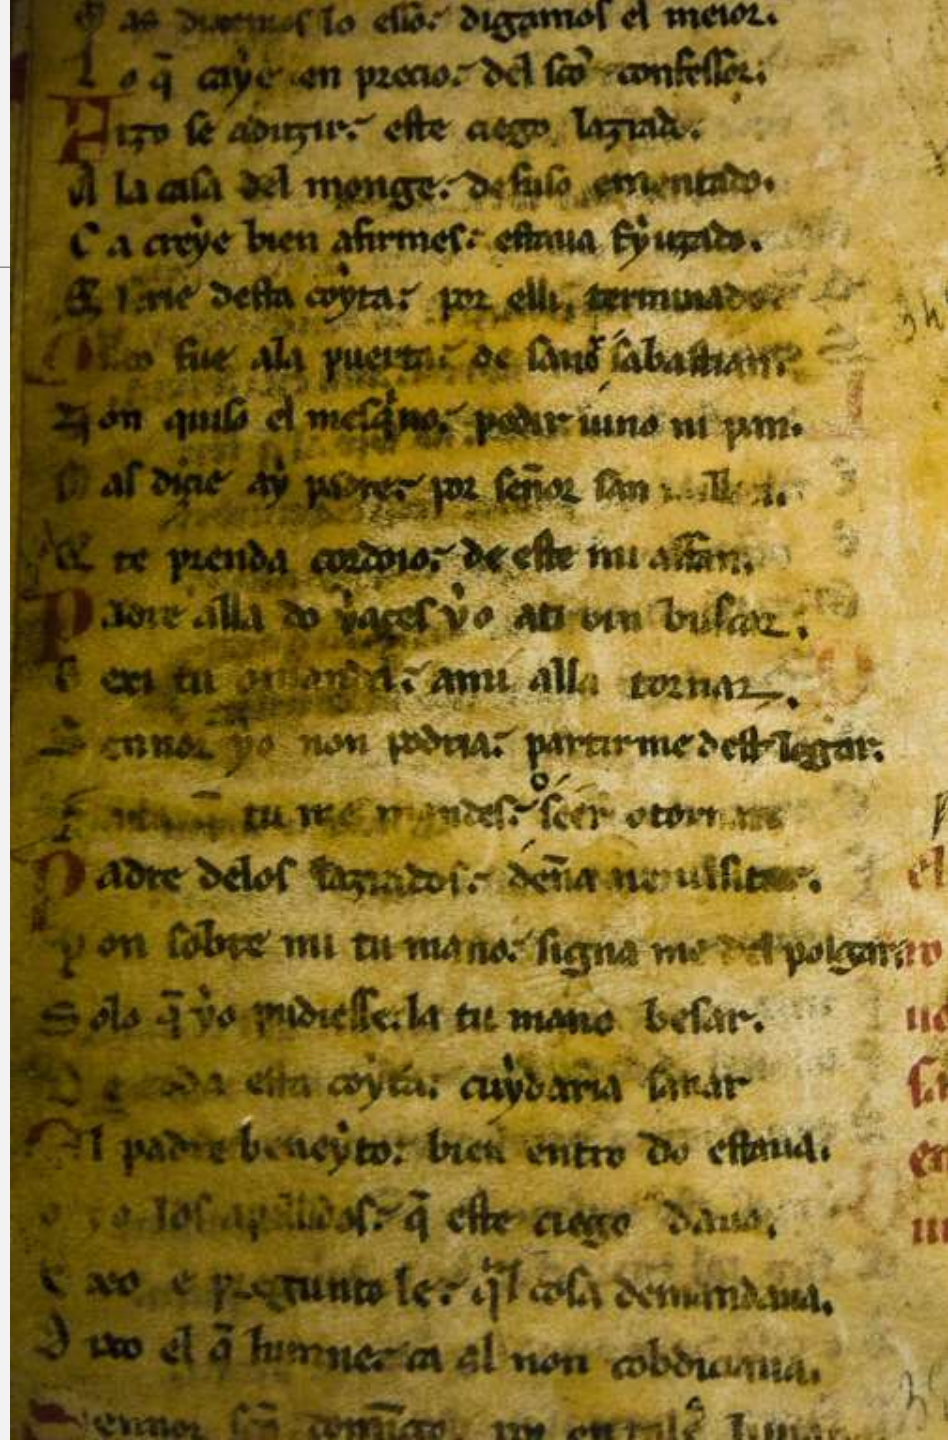 lo digamos el meior.
Lo q̄ caye en precio: del sc̄o confessor:
Fizo se aduzir: este ciego lazrado.
A la casa del monge: de suso ementado.
Ca creye bien afirmes: estaua fyuzado.
serie desta coyta: por elli, terminado
fue ala puerta: de sant sabastian:
Non quiso el mesq̄no: pedir uino ni pan.
Mas dizie ay padre: por señor san millan.
te prenda cordoio: de este mi affan.
Padre alla do yazes yo ati uin buscar:
exi tu o manda: ami alla tornar.
Sennor yo non podria: partir me dest logar:
tu me mandes: seer o tornar
Padre delos lazrados: deña me uisitar.
Pon sobre mi tu mano: signa me del polgar:
Solo q̄ yo pudiesse: la tu mano besar.
De toda esta coyta: cuydaria sanar
El padre beneyto: bien entro do estaua.
Oyo los apellidos: q̄ este ciego daua.
Exo e pregunto le: q̄l cosa demandaua.
Dixo el q̄ lumne: ca al non cobdiciaua.
Sennor